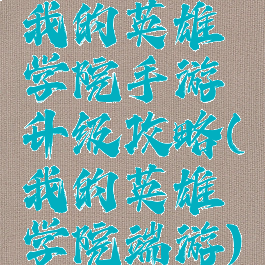 我的英雄
学院手游
升级攻略(
我的英雄
学院端游)